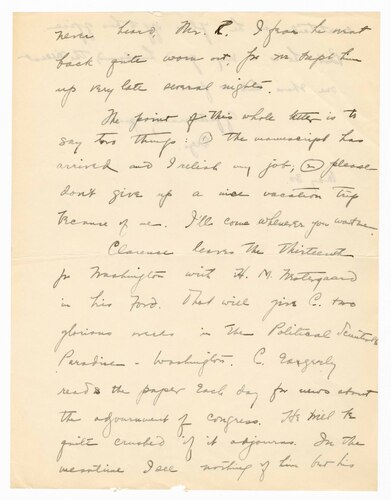 never heard, Mr. R. I fear he went
back quite worn out, for we kept him
up very late several nights.
The point of this whole letter is to
say two things: ① the manuscript has
arrived and I relish my job, ② please
don't give up a nice vacation trip
because of me. I'll come whenever you want me.
Clarence leaves the thirteenth
for Washington with H. M.
in his Ford. That will give C. two
glorious weeks in The Political Scientist's
Paradise - Washington. C. eagerly
reads the paper each day for news about
the adjournment of congress. He will be
quite crushed if it adjourns. In the
meantime I see nothing of him but his